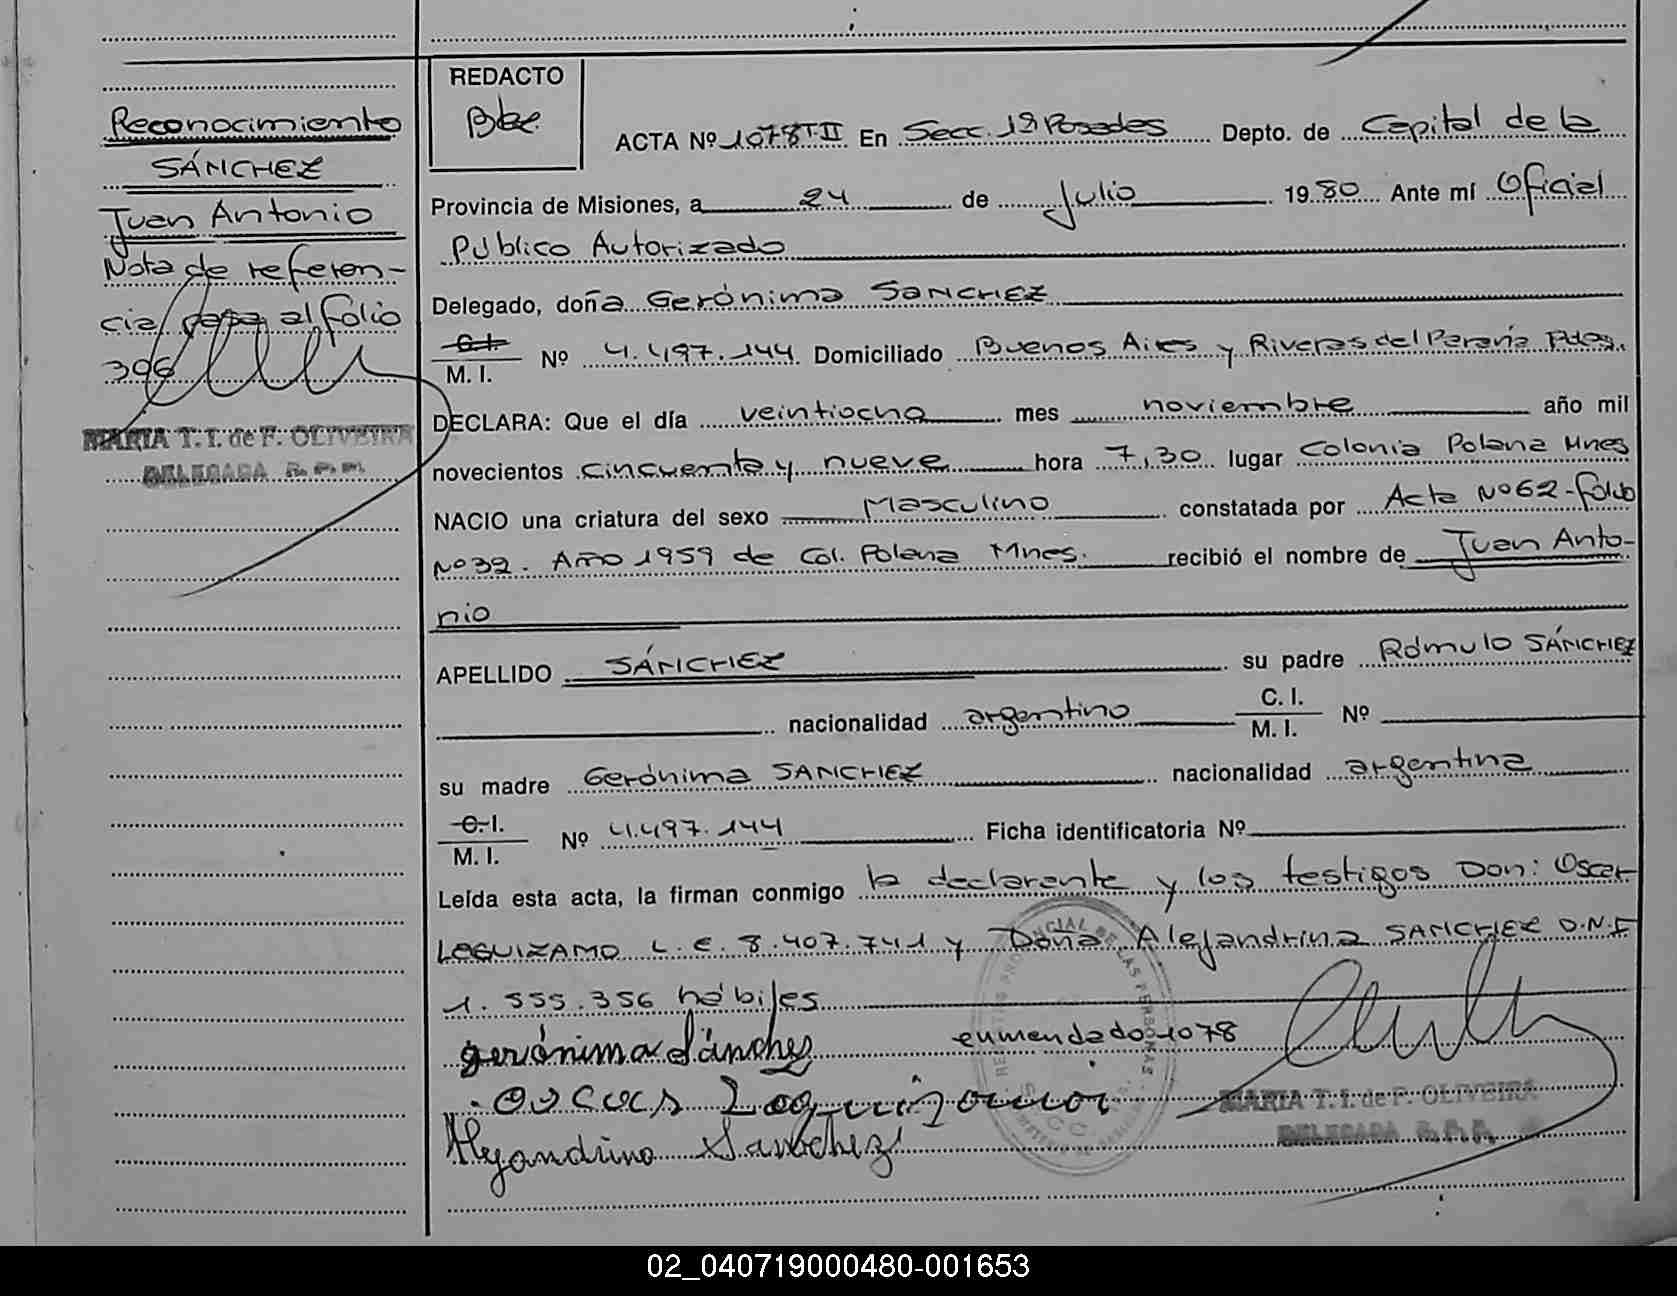 Reconocimiento
SÁNCHEZ
Juan Antonio
Nota de referen-
cia pasa al folio
396
MARIA T. I. de F. OLIVEIRA
DELEGADA R.P.P.
REDACTO
ACTA Nº 1078 T II En Secc. 1ª Posadas Depto. de Capital de la
Provincia de Misiones, a 24 de Julio 1980 Ante mí Oficial
Público Autorizado
Delegado, doña Gerónima SANCHEZ
C.I.
M. I. Nº 4.497.144 Domiciliado Buenos Aires y Riveras del Paraná Pdas.
DECLARA: Que el día veintiocho mes noviembre año mil
novecientos cincuenta y nueve hora 7,30 lugar Colonia Polana Mnes
NACIO una criatura del sexo Masculino constatada por Acta Nº 62 - folio
Nº 32. Año 1959 de Col. Polana Mnes. recibió el nombre de Juan Anto-
nio
APELLIDO SÁNCHEZ su padre Rómulo SÁNCHEZ
nacionalidad argentino C. I.
M. I. Nº
su madre Gerónima SANCHEZ nacionalidad argentina
C.I.
M. I. Nº 4.497.144 Ficha identificatoria Nº
Leída esta acta, la firman conmigo la declarante y los testigos Don: Oscar
LEGUIZAMO L.E. 8.407.741 y Doña Alejandrina SANCHEZ D.N.I
1.555.356 hábiles
gerónima Sánchez enmendado 1078
Alejandrina Sanchez
MARIA T. I. de F. OLIVEIRA
DELEGADA R.P.P.
02_040719000480-001653